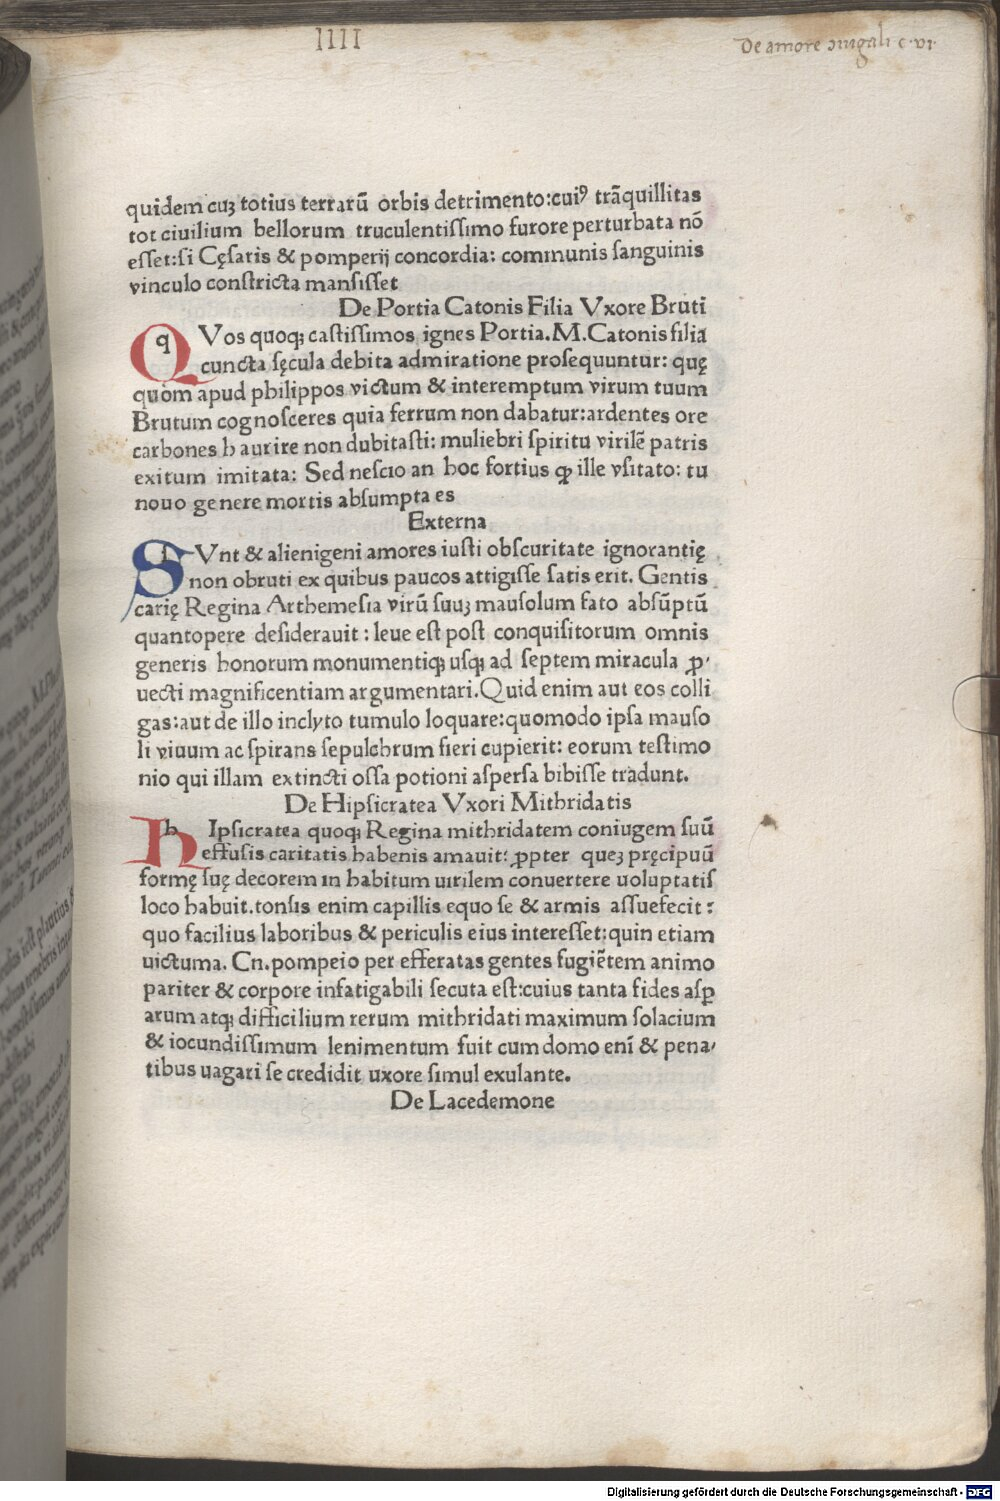 IIII
De amore ɔiugali c. vi.
quidem cuꝫ totius terrarū orbis detrimento:cuiꝰ trāquillitas
tot ciuilium bellorum truculentissimo furore perturbata nō
esset:si Cęsaris & pomperij concordia: communis sanguinis
vinculo constricta mansisset
De Portia Catonis Filia Vxore Bruti
QVos quoqꝫ castissimos ignes Portia.M.Catonis filia
cuncta sęcula debita admiratione prosequuntur: quę
quom apud philippos victum & interemptum virum tuum
Brutum cognosceres quia ferrum non dabatur:ardentes ore
carbones haurire non dubitasti: muliebri spiritu virilē patris
exitum imitata: Sed nescio an hoc fortius ꝙ ille vsitato: tu
nouo genere mortis absumpta es
Externa
SVnt & alienigeni amores iusti obscuritate ignorantię
non obruti ex quibus paucos attigisse satis erit. Gentis
carię Regina Arthemesia virū suuꝫ mausolum fato absūptū
quantopere desiderauit : leue est post conquisitorum omnis
generis honorum monumentiqꝫ usqꝫ ad septem miracula ꝓ-
uecti magnificentiam argumentari.Quid enim aut eos colli
gas:aut de illo inclyto tumulo loquare:quomodo ipsa mauso
li viuum ac spirans sepulchrum fieri cupierit: eorum testimo
nio qui illam extincti ossa potioni aspersa bibisse tradunt.
De Hipsicratea Vxori Mithridatis
hIpsicratea quoqꝫ Regina mithridatem coniugem suū
effusis caritatis habenis amauit: ꝓpter queꝫ pręcipuū
formę suę decorem in habitum uirilem conuertere uoluptatis
loco habuit.tonsis enim capillis equo se & armis assuefecit :
quo facilius laboribus & periculis eius interesset:quin etiam
uictuma. Cn.pompeio per efferatas gentes fugiētem animo
pariter & corpore infatigabili secuta est:cuius tanta fides asꝑ
arum atqꝫ difficilium rerum mithridati maximum solacium
& iocundissimum lenimentum fuit cum domo enī & pena-
tibus uagari se credidit uxore simul exulante.
De Lacedemone
Digitalisierung gefördert durch die Deutsche Forschungsgemeinschaft - DFG